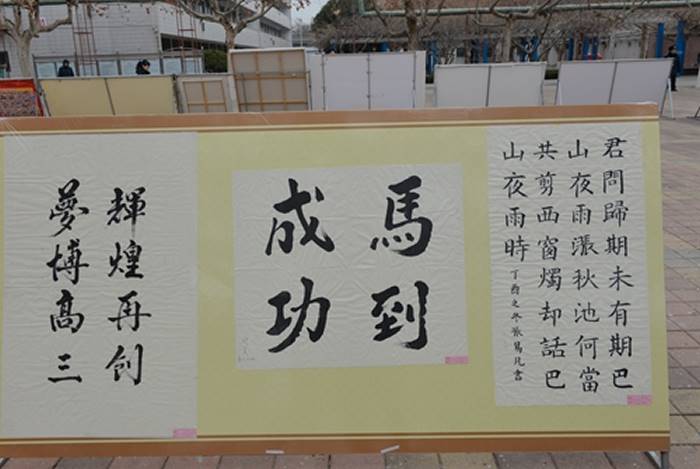 君問歸期未有期巴
山夜雨漲秋池何當
共剪西窗燭却話巴
山夜雨時
丁酉之冬
馬到
成功
輝煌再创
夢博高三